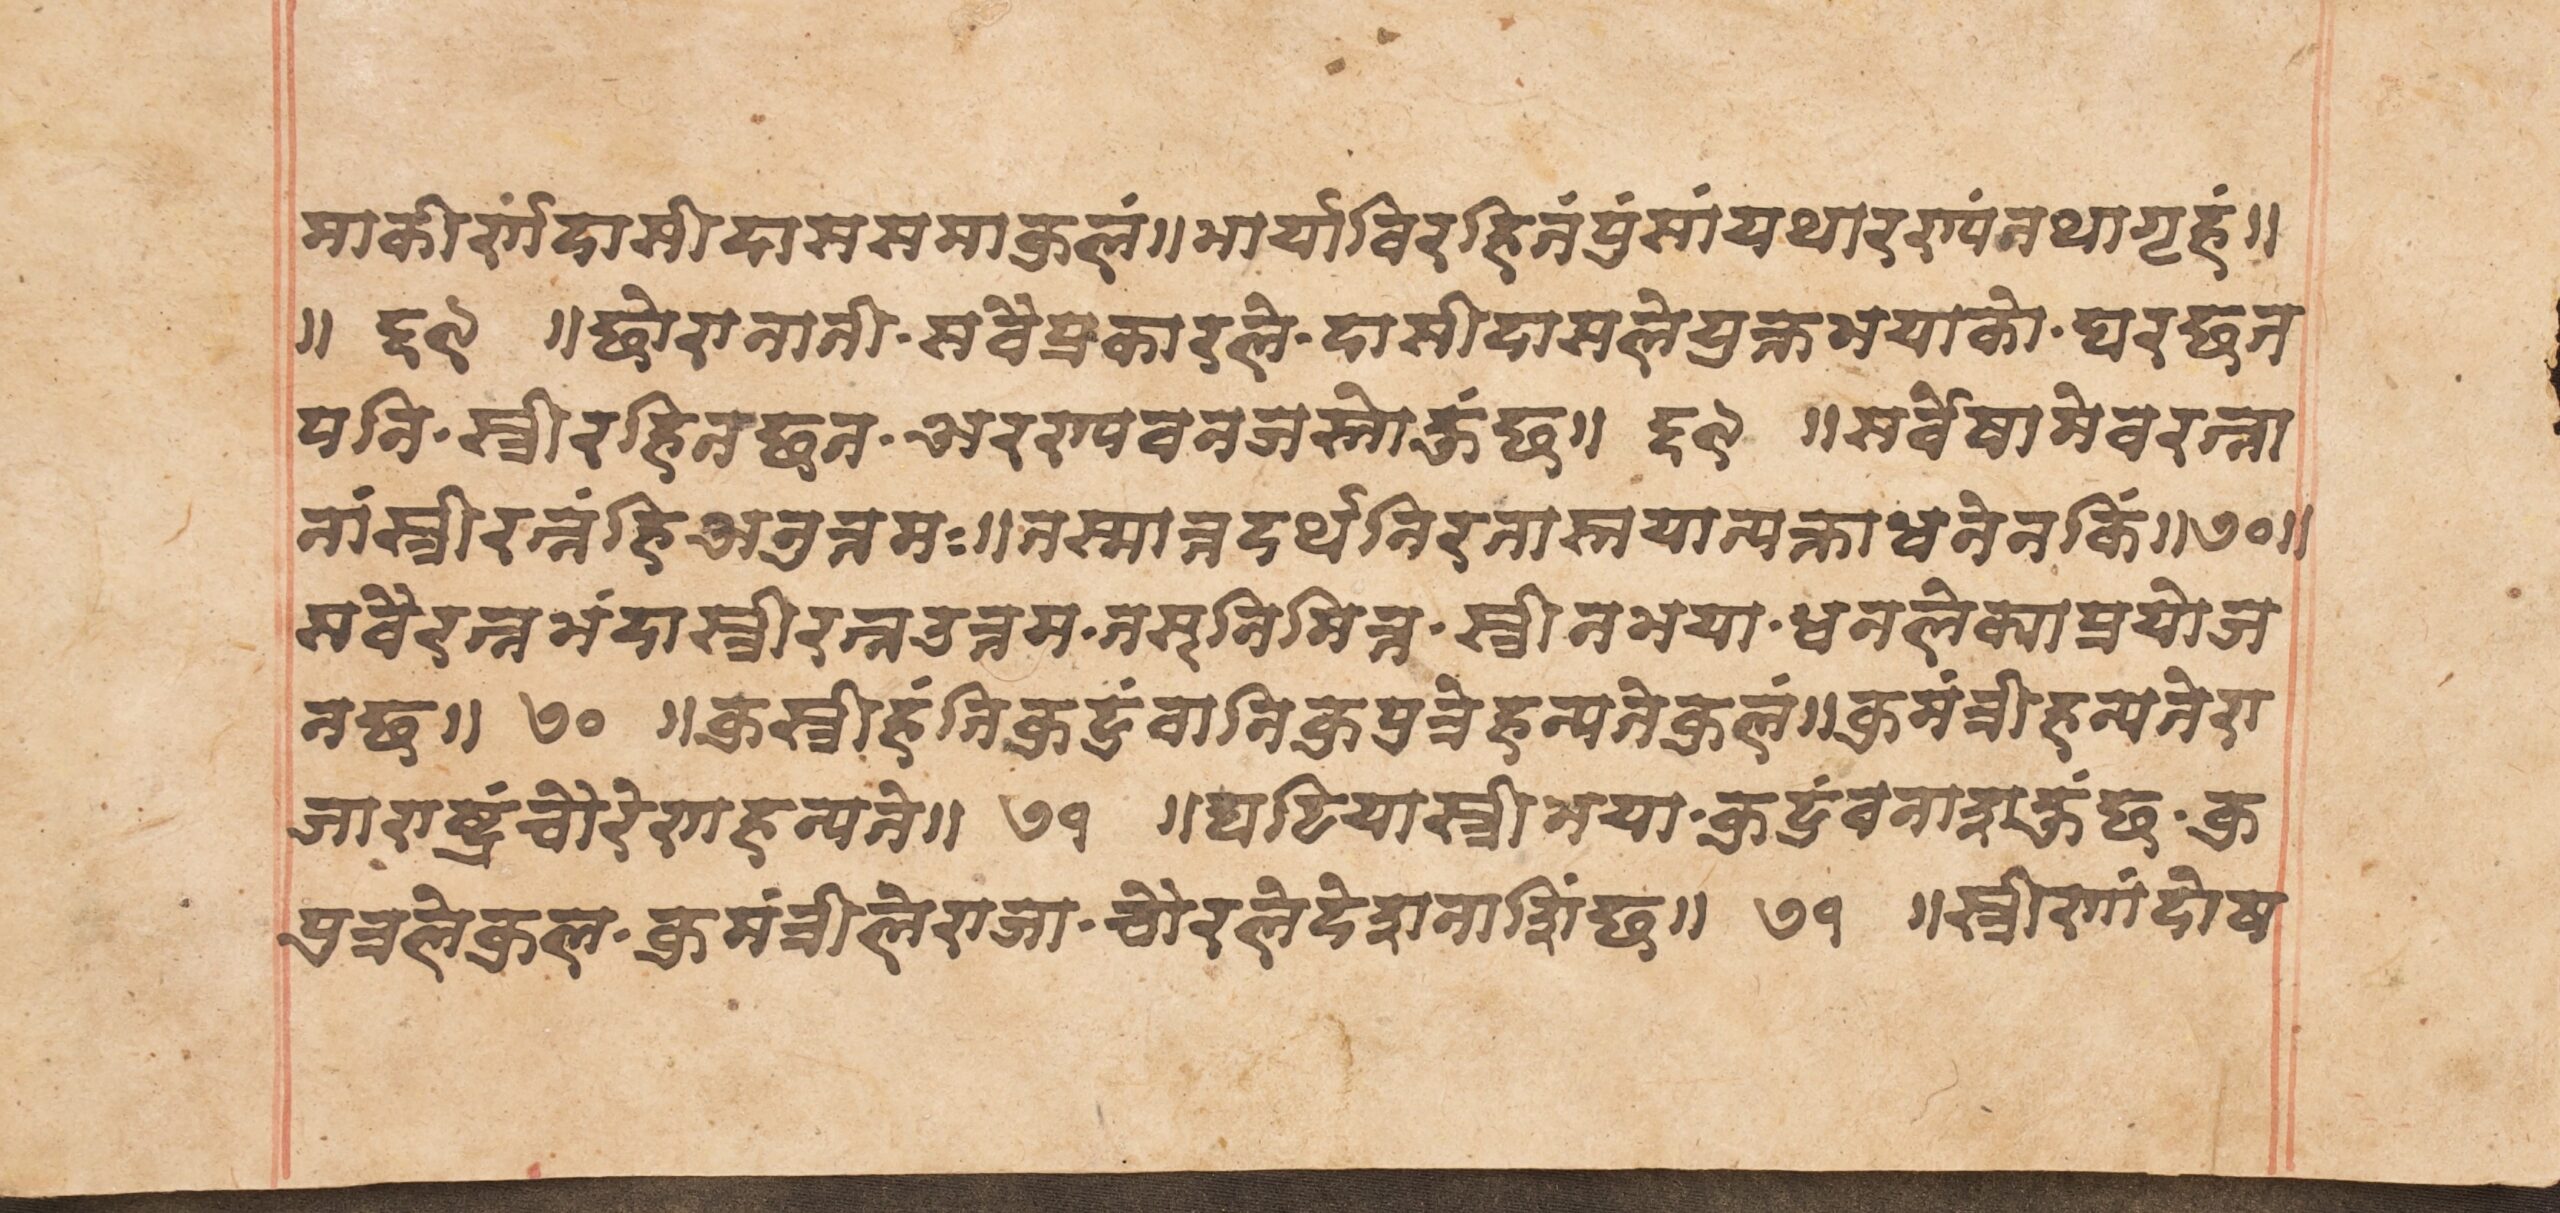 माकीर्णंदासीदाससमाकुलं॥भार्याविरहितंपुंसांयथारण्यंतथागृहं॥
॥ ६९ ॥छोरानाती·सवैप्रकारले·दासीदासलेयुक्तभयाको·घरछत
पनि·स्त्रीरहितछन·अरण्यवनजस्तोकुंछ॥ ६९ ॥सर्वेषामेवरत्ना
नांस्त्रीरत्नंहिअनुत्तमः॥तस्मात्तदर्थनिरतास्तयात्यक्ताधनेनकिं॥७०॥
सवैरत्नभंदास्त्रीरत्नउत्तम·तस्निमित्त·स्त्रीनभया·धनलेक्याप्रयोज
नछ॥ ७० ॥कुस्त्रीहंतिकुटुंवानिकुपुत्रेहन्यतेकुलं॥कुमंत्रीहन्यतेरा
जाराष्ट्रंचौरेणहन्यते॥ ७१ ॥घटियास्त्रीभया·कुटुंवनाशकुंछ·कु
पुत्रलेकुल·कुमंत्रीलेराजा·चौरलेदेशनाशिंछ॥ ७१ ॥स्त्रीणांदोष